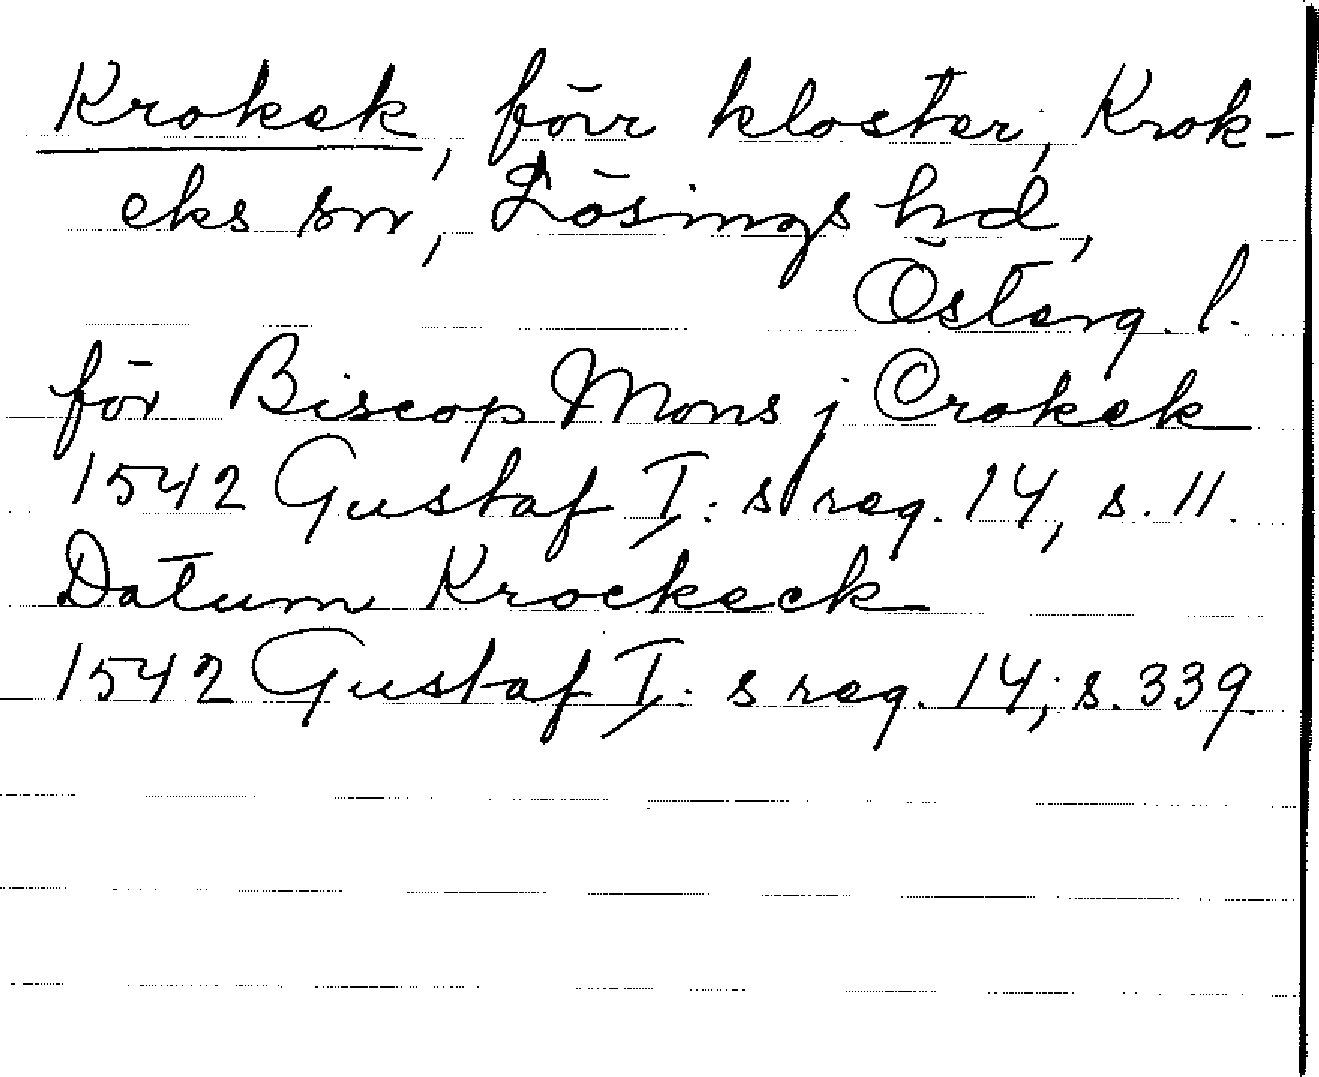 Krokek, förr kloster, Krok-
eks sn, Lösings hd,
Österg. l.
för Biscop Mons j Crokek
1542 Gustaf I:s reg. 14, s. 11.
Datum Krockeck
1542 Gustaf I:s reg. 14, s. 339